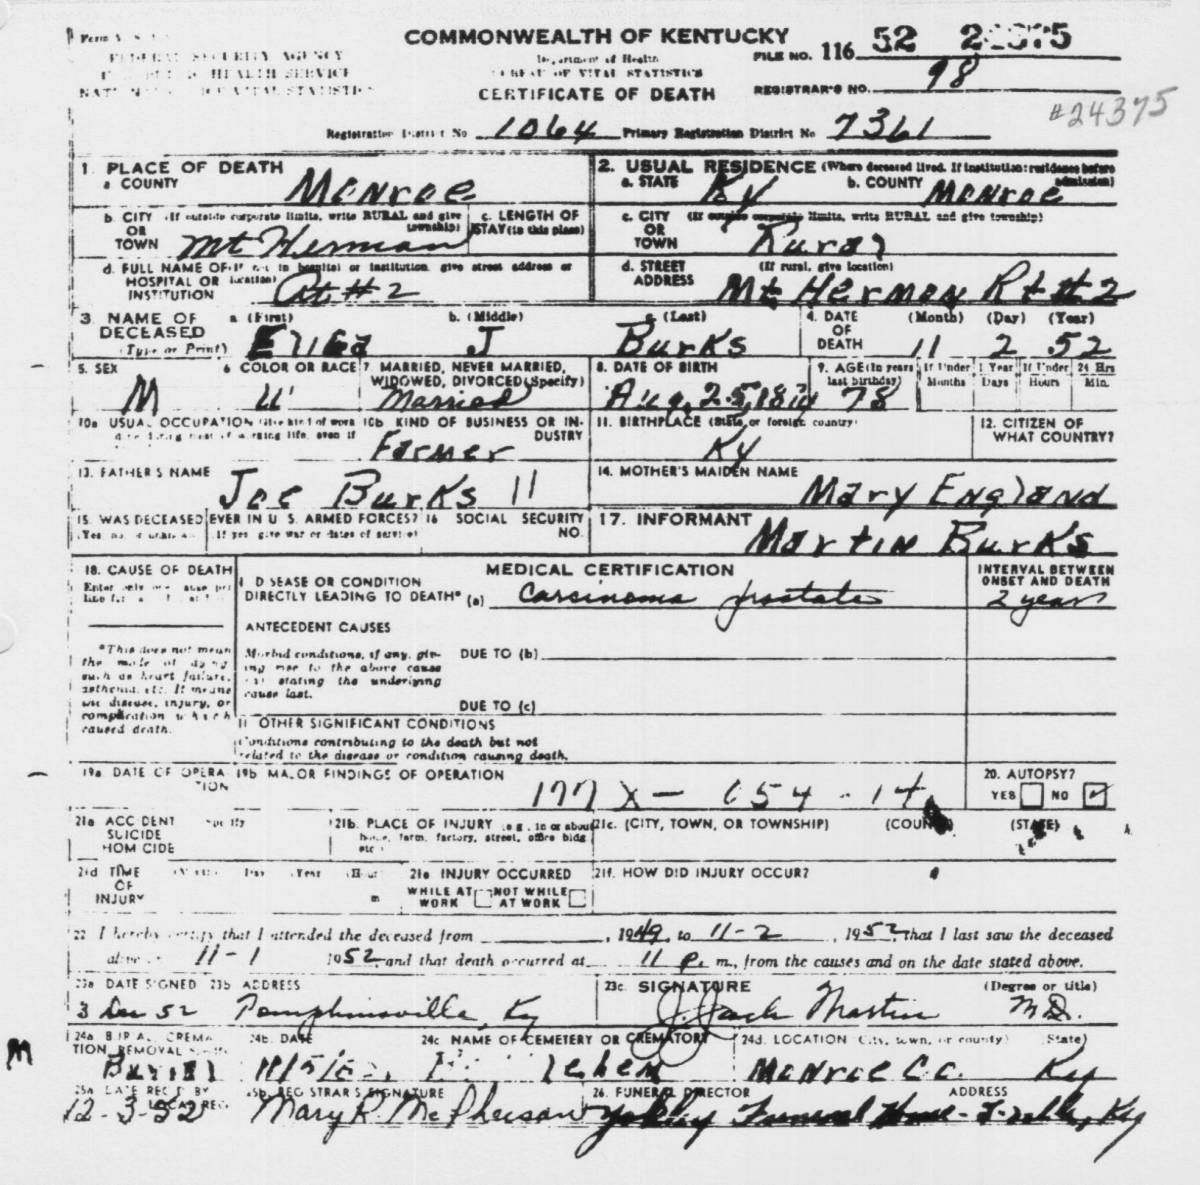 COMMONWEALTH OF KENTUCKY
Department of Health
BUREAU OF VITAL STATISTICS
CERTIFICATE OF DEATH
FEDERAL SECURITY AGENCY
HEALTH SERVICE
VITAL STATISTICS
FILE NO. 116 52
REGISTRAR'S NO. 98
#24375
Registration District No 1064 Primary Registration District No 7361
1. PLACE OF DEATH
a COUNTY Monroe
2. USUAL RESIDENCE (Where deceased lived. If institution: residence before admission)
a. STATE Ky b. COUNTY Monroe
b. CITY (If outside corporate limits, write RURAL and give township) OR TOWN Mt Herman
c. LENGTH OF STAY (in this place)
c. CITY (If outside corporate limits, write RURAL and give township) OR TOWN Rural
d. FULL NAME OF (If not in hospital or institution, give street address or location) HOSPITAL OR INSTITUTION Rt #2
d. STREET ADDRESS (If rural, give location) Mt Hermon Rt #2
3. NAME OF DECEASED (Type or Print)
a (First) b. (Middle) J c (Last) Burks
4. DATE OF DEATH (Month) (Day) (Year) 11 2 52
5. SEX M
6 COLOR OR RACE
7. MARRIED, NEVER MARRIED, WIDOWED, DIVORCED (Specify) Married
8. DATE OF BIRTH Aug. 25, 1874
9. AGE (In years last birthday) 78
If Under 1 Year Months Days
If Under 24 Hrs Hours Min.
10a USUAL OCCUPATION (Give kind of work done during most of working life, even if
10b KIND OF BUSINESS OR INDUSTRY Farmer
11. BIRTHPLACE (State or foreign country) Ky
12. CITIZEN OF WHAT COUNTRY?
13. FATHER'S NAME Joe Burks
14. MOTHER'S MAIDEN NAME Mary England
15. WAS DECEASED EVER IN U. S. ARMED FORCES? (If yes, give war or dates of service)
16 SOCIAL SECURITY NO.
17. INFORMANT Martin Burks
18. CAUSE OF DEATH
Enter only one cause per line for
MEDICAL CERTIFICATION
INTERVAL BETWEEN ONSET AND DEATH
I DISEASE OR CONDITION DIRECTLY LEADING TO DEATH* (a) Carcinoma prostate 2 years
ANTECEDENT CAUSES
Morbid conditions, if any, giving rise to the above cause (a) stating the underlying cause last.
DUE TO (b)
DUE TO (c)
*This does not mean the mode of dying such as heart failure, asthenia, etc. It means the disease, injury, or complication which caused death.
II OTHER SIGNIFICANT CONDITIONS
Conditions contributing to the death but not related to the disease or condition causing death.
19a DATE OF OPERATION
19b MAJOR FINDINGS OF OPERATION
177 X - 054 - 14
20. AUTOPSY?
YES NO
21a ACCIDENT SUICIDE HOMICIDE Specify
21b. PLACE OF INJURY (e.g., in or about home, farm, factory, street, office bldg etc.)
21c. (CITY, TOWN, OR TOWNSHIP) (COUNTY) (STATE)
21d TIME OF INJURY (Month) Day Year (Hour m
21e INJURY OCCURRED WHILE AT WORK NOT WHILE AT WORK
21f. HOW DID INJURY OCCUR?
22 I hereby certify that I attended the deceased from , 1949, to 11-2, 1952, that I last saw the deceased
alive on 11-1 1952, and that death occurred at 11 p. m., from the causes and on the date stated above.
23a DATE SIGNED 3 Dec 52
23b ADDRESS Tompkinsville, Ky
23c. SIGNATURE (Degree or title) Jack Martin M.D.
24a BURIAL, CREMATION, REMOVAL Burial
24b. DATE
24c NAME OF CEMETERY OR CREMATORY
24d. LOCATION (City, town, or county) (State) Monroe Co. Ky
M
25a DATE REC'D BY LOCAL REG 12-3-52
25b. REGISTRAR'S SIGNATURE Mary R. McPherson
26. FUNERAL DIRECTOR ADDRESS Funeral Home Ky